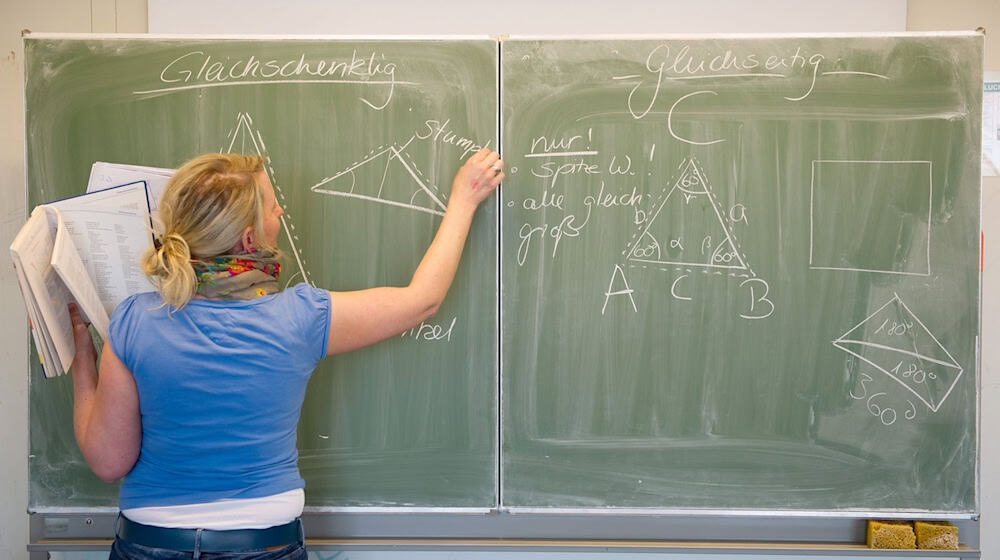 Gleichschenklig
Stumpf
Gleichseitig
nur!
• spitze W. !
• alle gleich
groß
C
60°
γ
b
a
60°
α
β
60°
A
C
B
180°
180°
360°